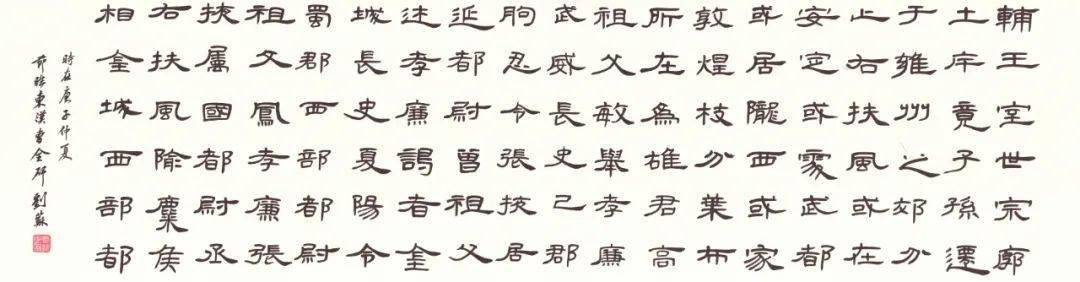 輔王室世宗廓
土斥竟子孫遷
于雍州之郊分
止右扶風或在
安定或處武都
或居隴西或家
敦煌枝分葉布
所在為雄君高
祖父敏舉孝廉
武威長史巴郡
朐忍令張掖居
延都尉曾祖父
述孝廉謁者金
城長史夏陽令
蜀郡西部都尉
祖父鳳孝廉張
掖屬國都尉丞
右扶風隃麋侯
相金城西部都
時在庚子仲夏
節臨東漢曹全碑 劉蘇